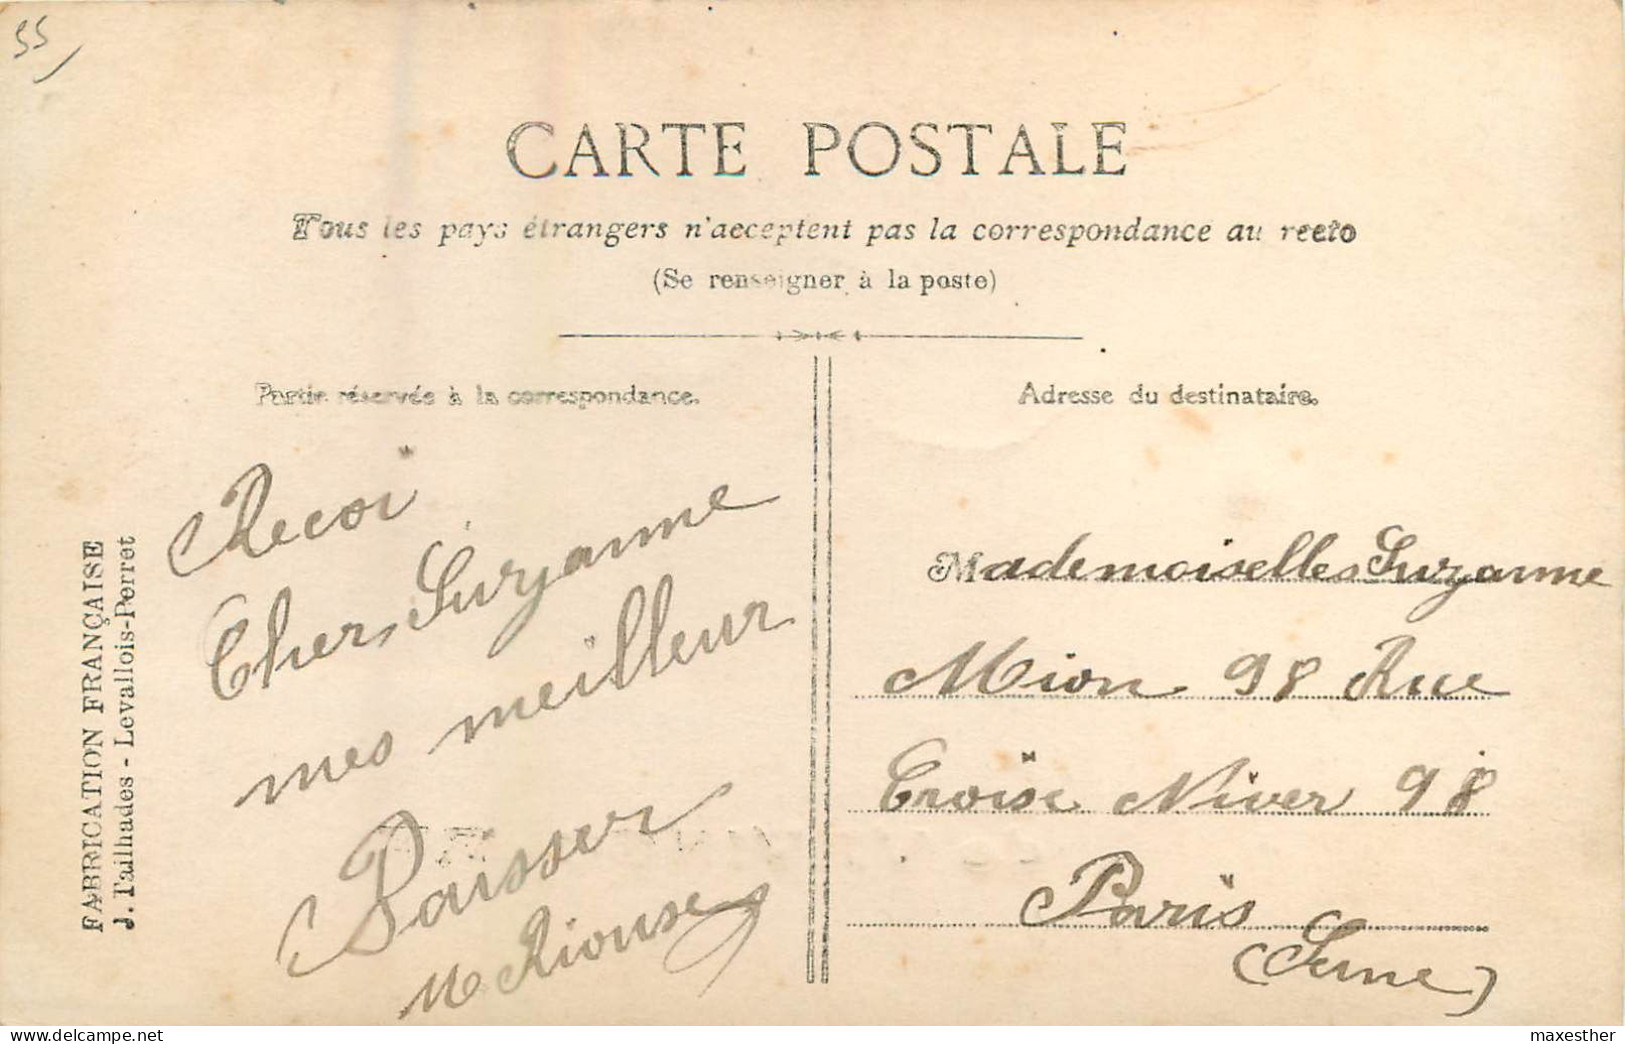 55
CARTE POSTALE
Tous les pays étrangers n'acceptent pas la correspondance au recto
(Se renseigner à la poste)
Partie réservée à la correspondance.
Adresse du destinataire.
FABRICATION FRANÇAISE
J. Tailhades - Levallois-Perret
Recoi
Cher Suzanne
mes meilleur
Baisser
M Riouse
Mademoiselles Suzanne
Mion 98 Rue
Croise Niver 98
Paris
(Seine)
maxesther